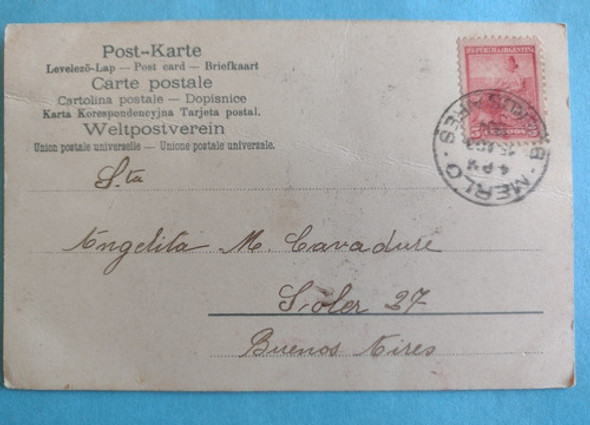 Post-Karte
Levelező-Lap — Post card — Briefkaart
Carte postale
Cartolina postale — Dopisnice
Karta Korespondencyjna Tarjeta postal.
Weltpostverein
Union postale universelle — Unione postale universale.
REPUBLICA ARGENTINA
5 CENTAVOS 5
MERLO
4 P M
BUENOS AIRES
Sta
Angelita M. Cavadure
Soler 27
Buenos Aires